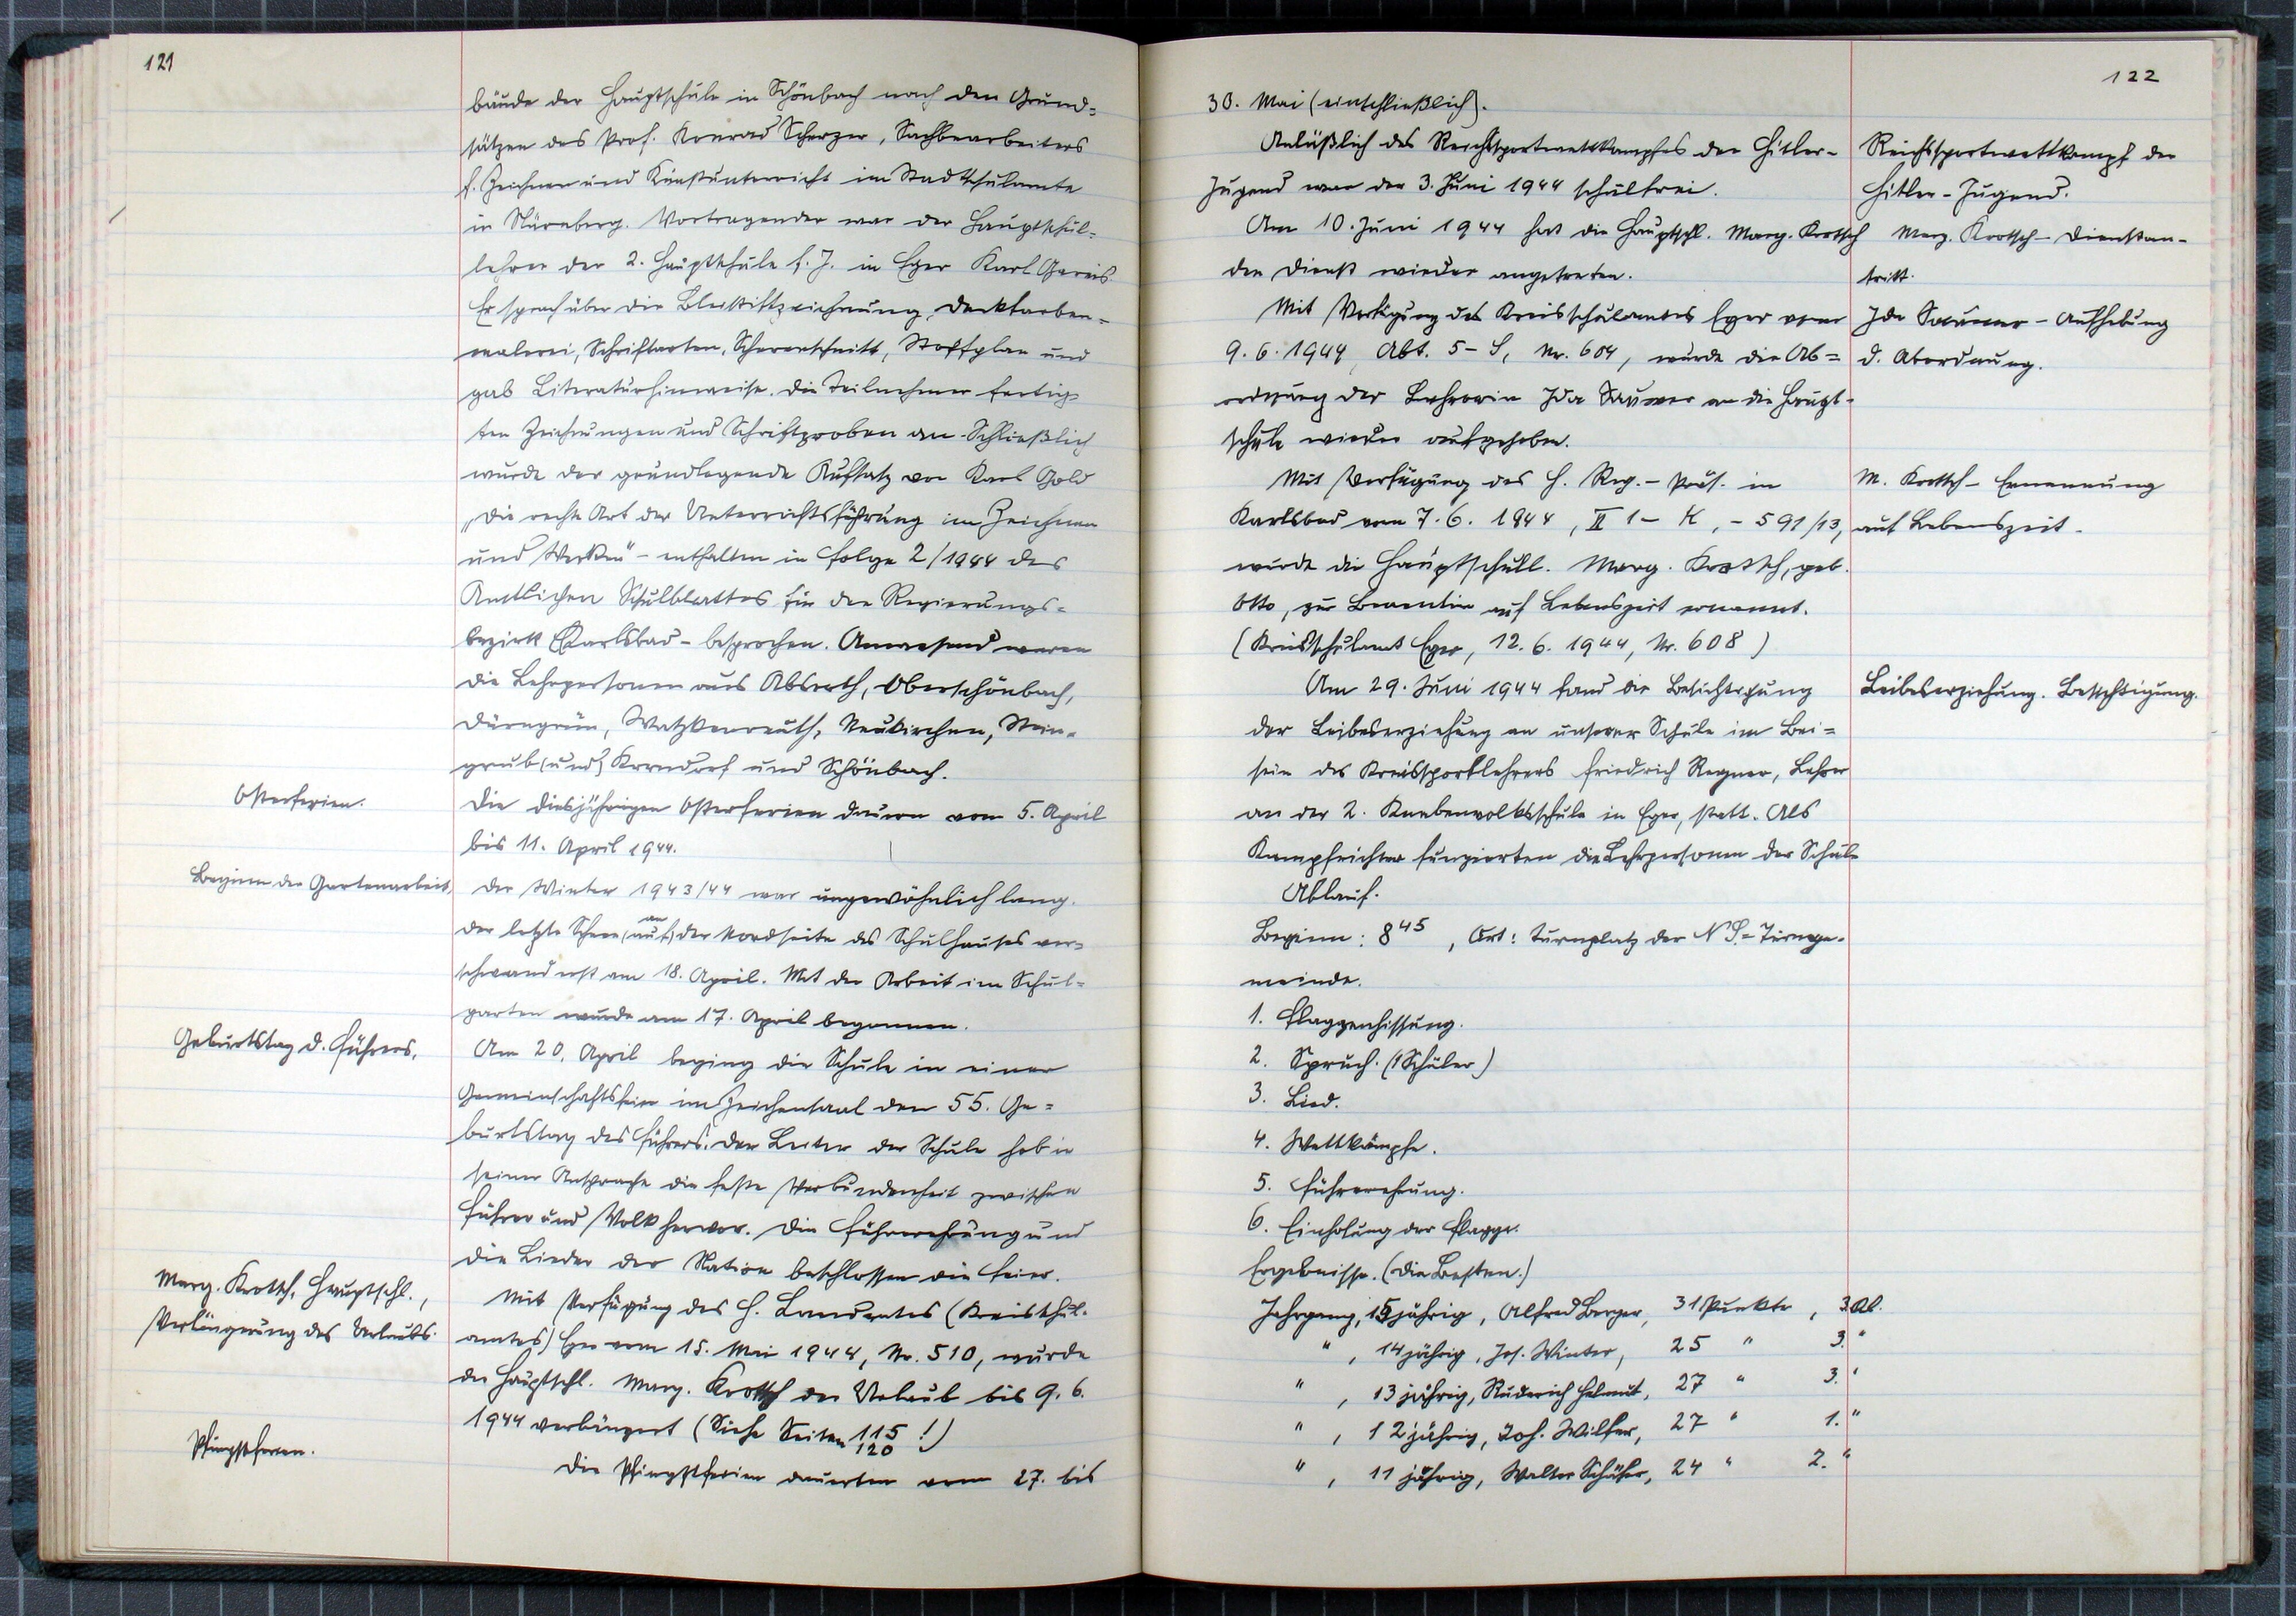 121
bäude der Hauptschule in Schönbach nach den Grund=
sätzen des Prof. Konrad Scherzer, Sachbearbeiters
f. Zeichnen und Kunstunterricht im Stadtschulamte
in Nürnberg. Vortragender war der Hauptschul=
lehrer der 2. Hauptschule f. J. in Eger Karl Gareis.
Er sprach über die Bleistiftzeichnung, Deckfarben=
malerei, Schriftarten, Scherenschnitt, Stoffplan und
gab Literaturhinweise. Die Teilnehmer fertig=
ten Zeichnungen und Schriftproben an. Schließlich
wurde der grundlegende Aufsatz von Karl Gold
„Die rechte Art der Unterrichtsführung im Zeichnen
und Werken“ - enthalten in Folge 2/1944 des
Amtlichen Schulblattes für den Regierungs=
bezirk Karlsbad - besprochen. Anwesend waren
die Lehrpersonen aus Absroth, Oberschönbach,
Dürngrün, Watzkenreuth, Neukirchen, Stein=
grub (und) Krondorf und Schönbach.
Osterferien.
Die diesjährigen Osterferien dauern vom 5. April
bis 11. April 1944.
Beginn der Gartenarbeit.
Der Winter 1943/44 war ungewöhnlich lang.
an
Der letzte Schnee (auf) der Nordseite des Schulhauses ver=
schwand erst am 18. April. Mit der Arbeit im Schul=
garten wurde am 17. April begonnen.
Geburtstag d. Führers.
Am 20. April beging die Schule in einer
Gemeinschaftsfeier im Zeichensaal den 55. Ge=
burtstag des Führers. Der Leiter der Schule hob in
seiner Ansprache die feste Verbundenheit zwischen
Führer und Volk hervor. Die Führerehrung und
die Lieder der Nation beschlossen die Feier.
Marg. Krotsch, Hauptschl.,
Verlängerung des Urlaubs.
Mit Verfügung des H. Landrates (Kreisschul=
amtes) Eger vom 15. Mai 1944, Nr. 510, wurde
der Hauptschl. Marg. Krotsch der Urlaub bis 9. 6.
1944 verlängert (Siehe Seiten 115 !)
120
Pfingstferien.
Die Pfingstferien dauerten vom 27. bis
122
30. Mai (einschließlich).
Anläßlich des Reichssportwettkampfes der Hitler-
Jugend war der 3. Juni 1944 schulfrei.
Reichssportwettkampf der
Hitler-Jugend.
Am 10. Juni 1944 hat die Hauptschl. Marg. Krotsch
den Dienst wieder angetreten.
Marg. Krotsch - Dienstan-
tritt.
Mit Verfügung des Kreisschulamtes Eger vom
9. 6. 1944, Abt. 5-S, Nr. 604, wurde die Ab=
ordnung der Lehrerin Ida Sauer an die Haupt-
schule wieder aufgehoben.
Ida - Aufhebung
d. Abordnung.
Mit Verfügung des H. Reg.-Präs. in
Karlsbad vom 7. 6. 1944, II 1- K, - 591/13,
wurde die Hauptschull. Marg. Krotsch, geb.
Otto, zur Beamtin auf Lebenszeit ernannt.
(Kreisschulamt Eger, 12. 6. 1944, Nr. 608)
M. Krotsch - Ernennung
auf Lebenszeit.
Am 29. Juni 1944 fand die Besichtigung
der Leibeserziehung an unserer Schule im Bei=
sein des Kreissportlehrers Friedrich Regner, Lehrer
an der 2. Knabenvolksschule in Eger, statt. Als
Kampfrichter fungierten die Lehrpersonen der Schule
Leibeserziehung. Besichtigung.
Ablauf.
Beginn: 8 45, Ort: Turnplatz der NS=Turnge-
meinde.
1. Flaggenhissung.
2. Spruch. (1 Schüler)
3. Lied.
4. Wettkämpfe.
5. Führerehrung.
6. Einholung der Flagge.
Ergebnisse. (Die Besten.)
Jahrgang, 15 jährig, Alfred Berger, 31 Punkte, 3. Kl.
" , 14 jährig, Jos. Winter, 25 " 3. "
" , 13 jährig, Ruderich Helmut, 27 " 3. "
" , 12 jährig, Joh. Wilfer, 27 " 1. "
" , 11 jährig, Walter Schäfer, 24 " 2. "